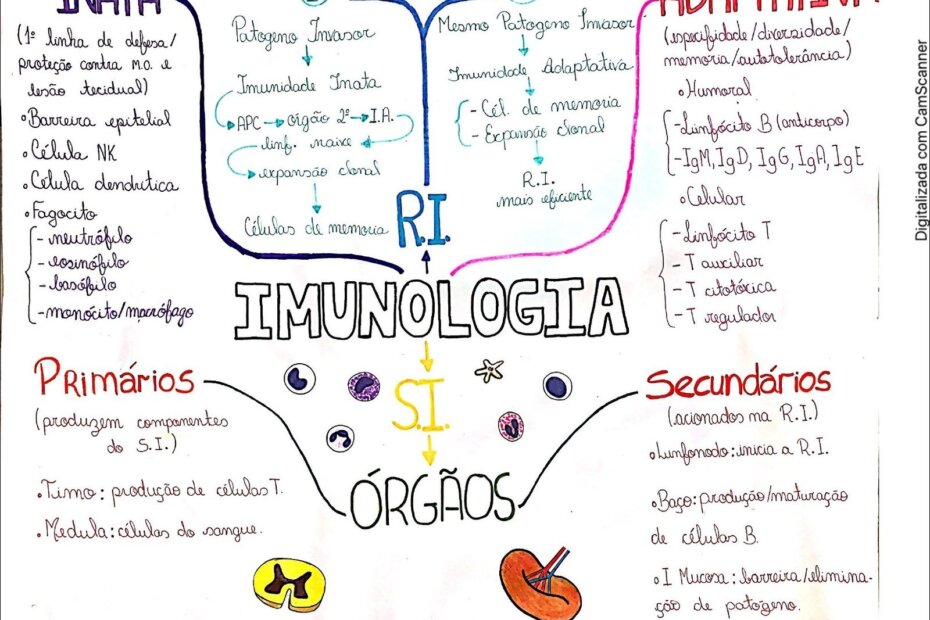 INATA
(1ª linha de defesa/
proteção contra M.O. e
lesão tecidual)
•Barreira epitelial
•Célula NK
•Célula dendrítica
•Fagócito
- neutrófilo
- eosinófilo
- basófilo
- monócito/macrófago
Patógeno Invasor
Imunidade Inata
APC → órgão 2º → I.A.
linf. naive
expansão clonal
Células de memória
Mesmo Patógeno Invasor
Imunidade Adaptativa
- Cél. de memória
- Expansão clonal
R.I.
mais eficiente
R.I.
ADAPTATIVA
(especifidade/diversidade/
memória/autotolerância)
• Humoral
- Linfócito B (anticorpo)
- IgM, IgD, IgG, IgA, IgE
• Celular
- Linfócito T
- T auxiliar
- T citotóxica
- T regulador
IMUNOLOGIA
S.I.
ÓRGÃOS
Primários
(produzem componentes
do S.I.)
•Timo: produção de células T.
•Medula: células do sangue.
Secundários
(acionados na R.I.)
•Linfonodo: inicia a R.I.
•Baço: produção/maturação
de células B.
•I Mucosa: barreira/elimina-
ção de patógeno.
Digitalizada com CamScanner